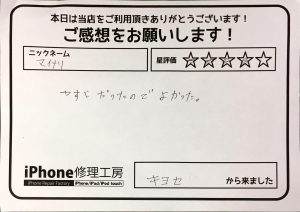 本日は当店をご利用頂きありがとうございます！
ご感想をお願いします！
ニックネーム
マイナリ
星評価
☆☆☆☆☆
やすかったのでよかった。
iPhone修理工房
iPhone Repair Factory iPhone/iPad/iPod touch
キヨセ
から来ました